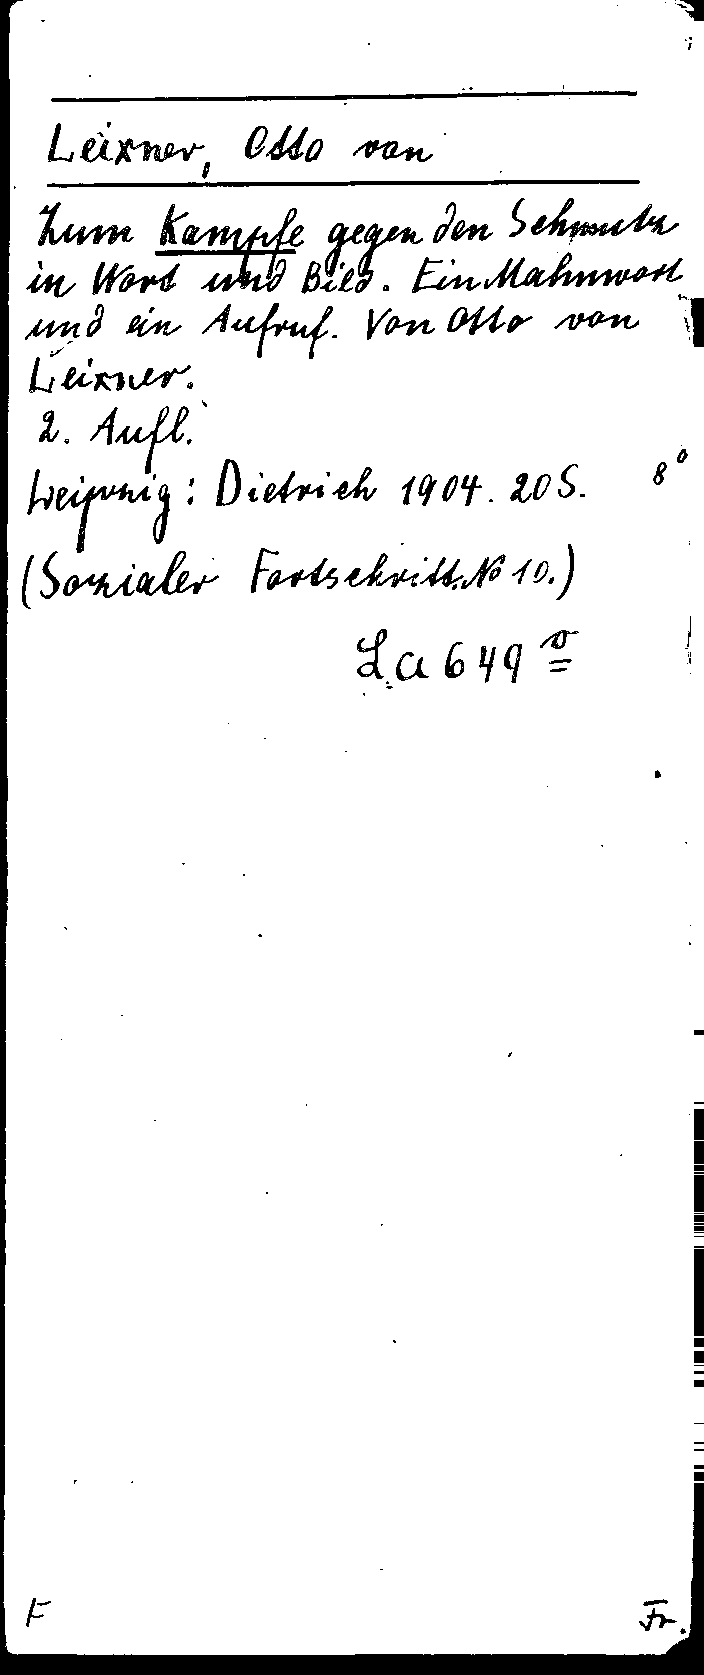 Leixner, Otto von
Zum Kampfe gegen den Schmutz
in Wort und Bild. Ein Mahnwort
und ein Aufruf. Von Otto von
Leixner.
2. Aufl.
Leipzig: Dietrich 1904. 20 S. 8°
(Sozialer Fortschritt. No 10.)
La 649 v
F Fr.